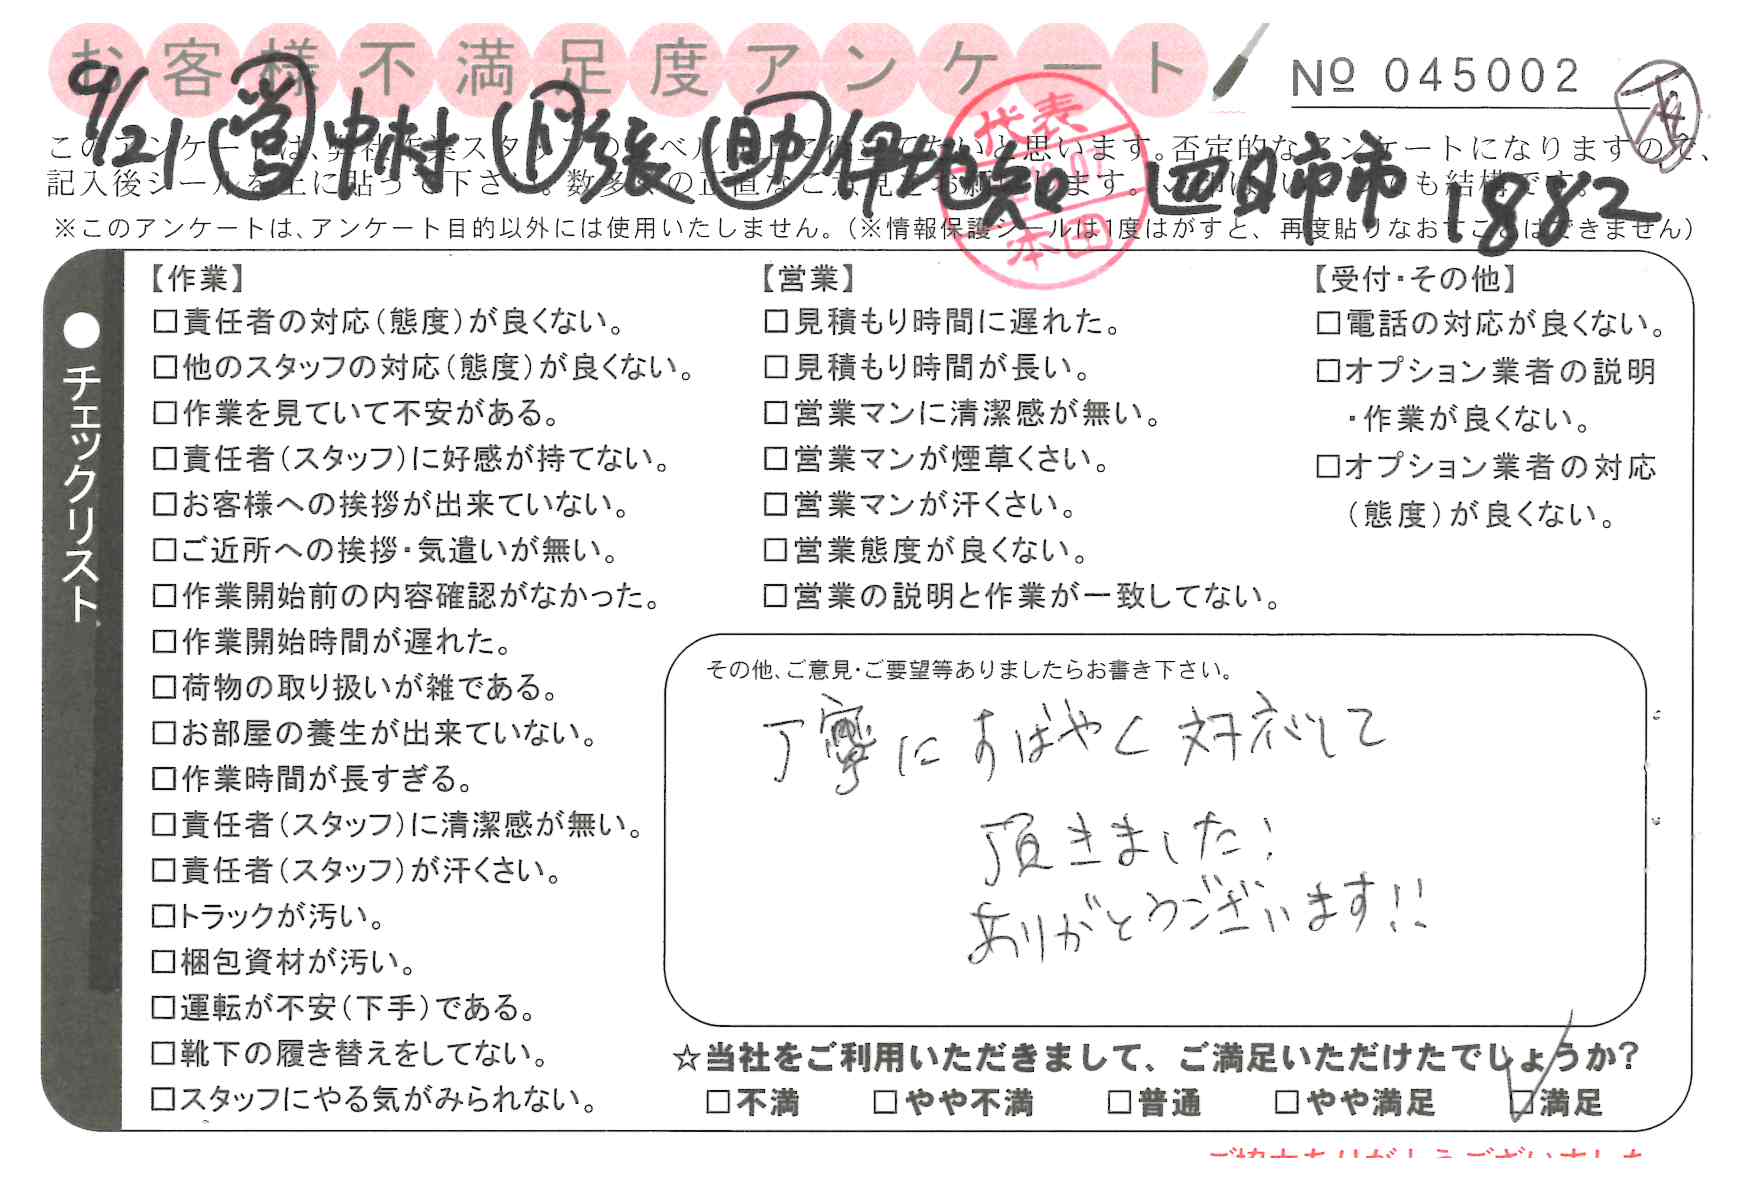 お客様不満足度アンケート
№ 045002
9/21 営 中村 月 張 助 伊地知 四日市市 1882
代表
本田
※このアンケートは、アンケート目的以外には使用いたしません。(※情報保護シールは1度はがすと、再度貼りなおすことはできません)
●チェックリスト
【作業】
□責任者の対応(態度)が良くない。
□他のスタッフの対応(態度)が良くない。
□作業を見ていて不安がある。
□責任者(スタッフ)に好感が持てない。
□お客様への挨拶が出来ていない。
□ご近所への挨拶・気遣いが無い。
□作業開始前の内容確認がなかった。
□作業開始時間が遅れた。
□荷物の取り扱いが雑である。
□お部屋の養生が出来ていない。
□作業時間が長すぎる。
□責任者(スタッフ)に清潔感が無い。
□責任者(スタッフ)が汗くさい。
□トラックが汚い。
□梱包資材が汚い。
□運転が不安(下手)である。
□靴下の履き替えをしてない。
□スタッフにやる気がみられない。
【営業】
□見積もり時間に遅れた。
□見積もり時間が長い。
□営業マンに清潔感が無い。
□営業マンが煙草くさい。
□営業マンが汗くさい。
□営業態度が良くない。
□営業の説明と作業が一致してない。
【受付・その他】
□電話の対応が良くない。
□オプション業者の説明
・作業が良くない。
□オプション業者の対応
(態度)が良くない。
その他、ご意見・ご要望等ありましたらお書き下さい。
丁寧に すばやく 対応して
頂きました!
ありがとうございます!!
☆当社をご利用いただきまして、ご満足いただけたでしょうか?
□不満 □やや不満 □普通 □やや満足 ☑満足